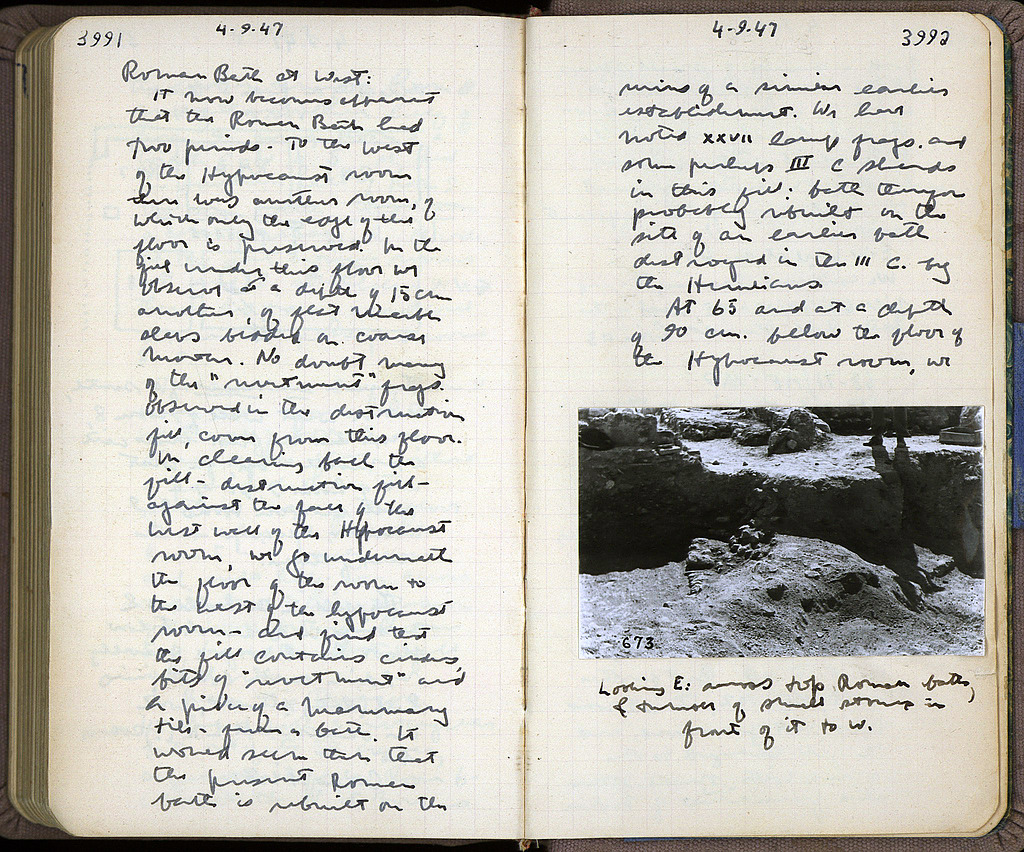 3991
4-9-47
Roman Bath at West:
It now becomes apparent
that the Roman Bath had
two periods. To the west
of the Hypocaust room
there was another room, of
which only the edge of the
floor is preserved. In the
fill under this floor we
observe at a depth of 15 cm
another, of flat marble
slabs bedded on coarse
mortar. No doubt many
of the "revetment" frags.
observed in the destruction
fill, come from this floor.
In clearing back the
fill - destruction fill -
against the face of the
west wall of the Hypocaust
room, we go underneath
the floor of the room to
the west of the hypocaust
room - and find that
the fill contains cinders,
bits of "revetment" and
a piece of a mammary
tile - from a bath. It
would seem then that
the present Roman
bath is rebuilt on the
4-9-47
3992
ruins of a similar earlier
establishment. We have
noted XXVII lamp frags. and
some perhaps III C sherds
in this fill: bath therefore
probably rebuilt on the
site of an earlier bath
destroyed in the III C. by
the Herulians
At 65 and at a depth
of 90 cm. below the floor of
the Hypocaust room, we
673
Looking E: across top Roman bath,
& tumble of small stones in
front of it to W.